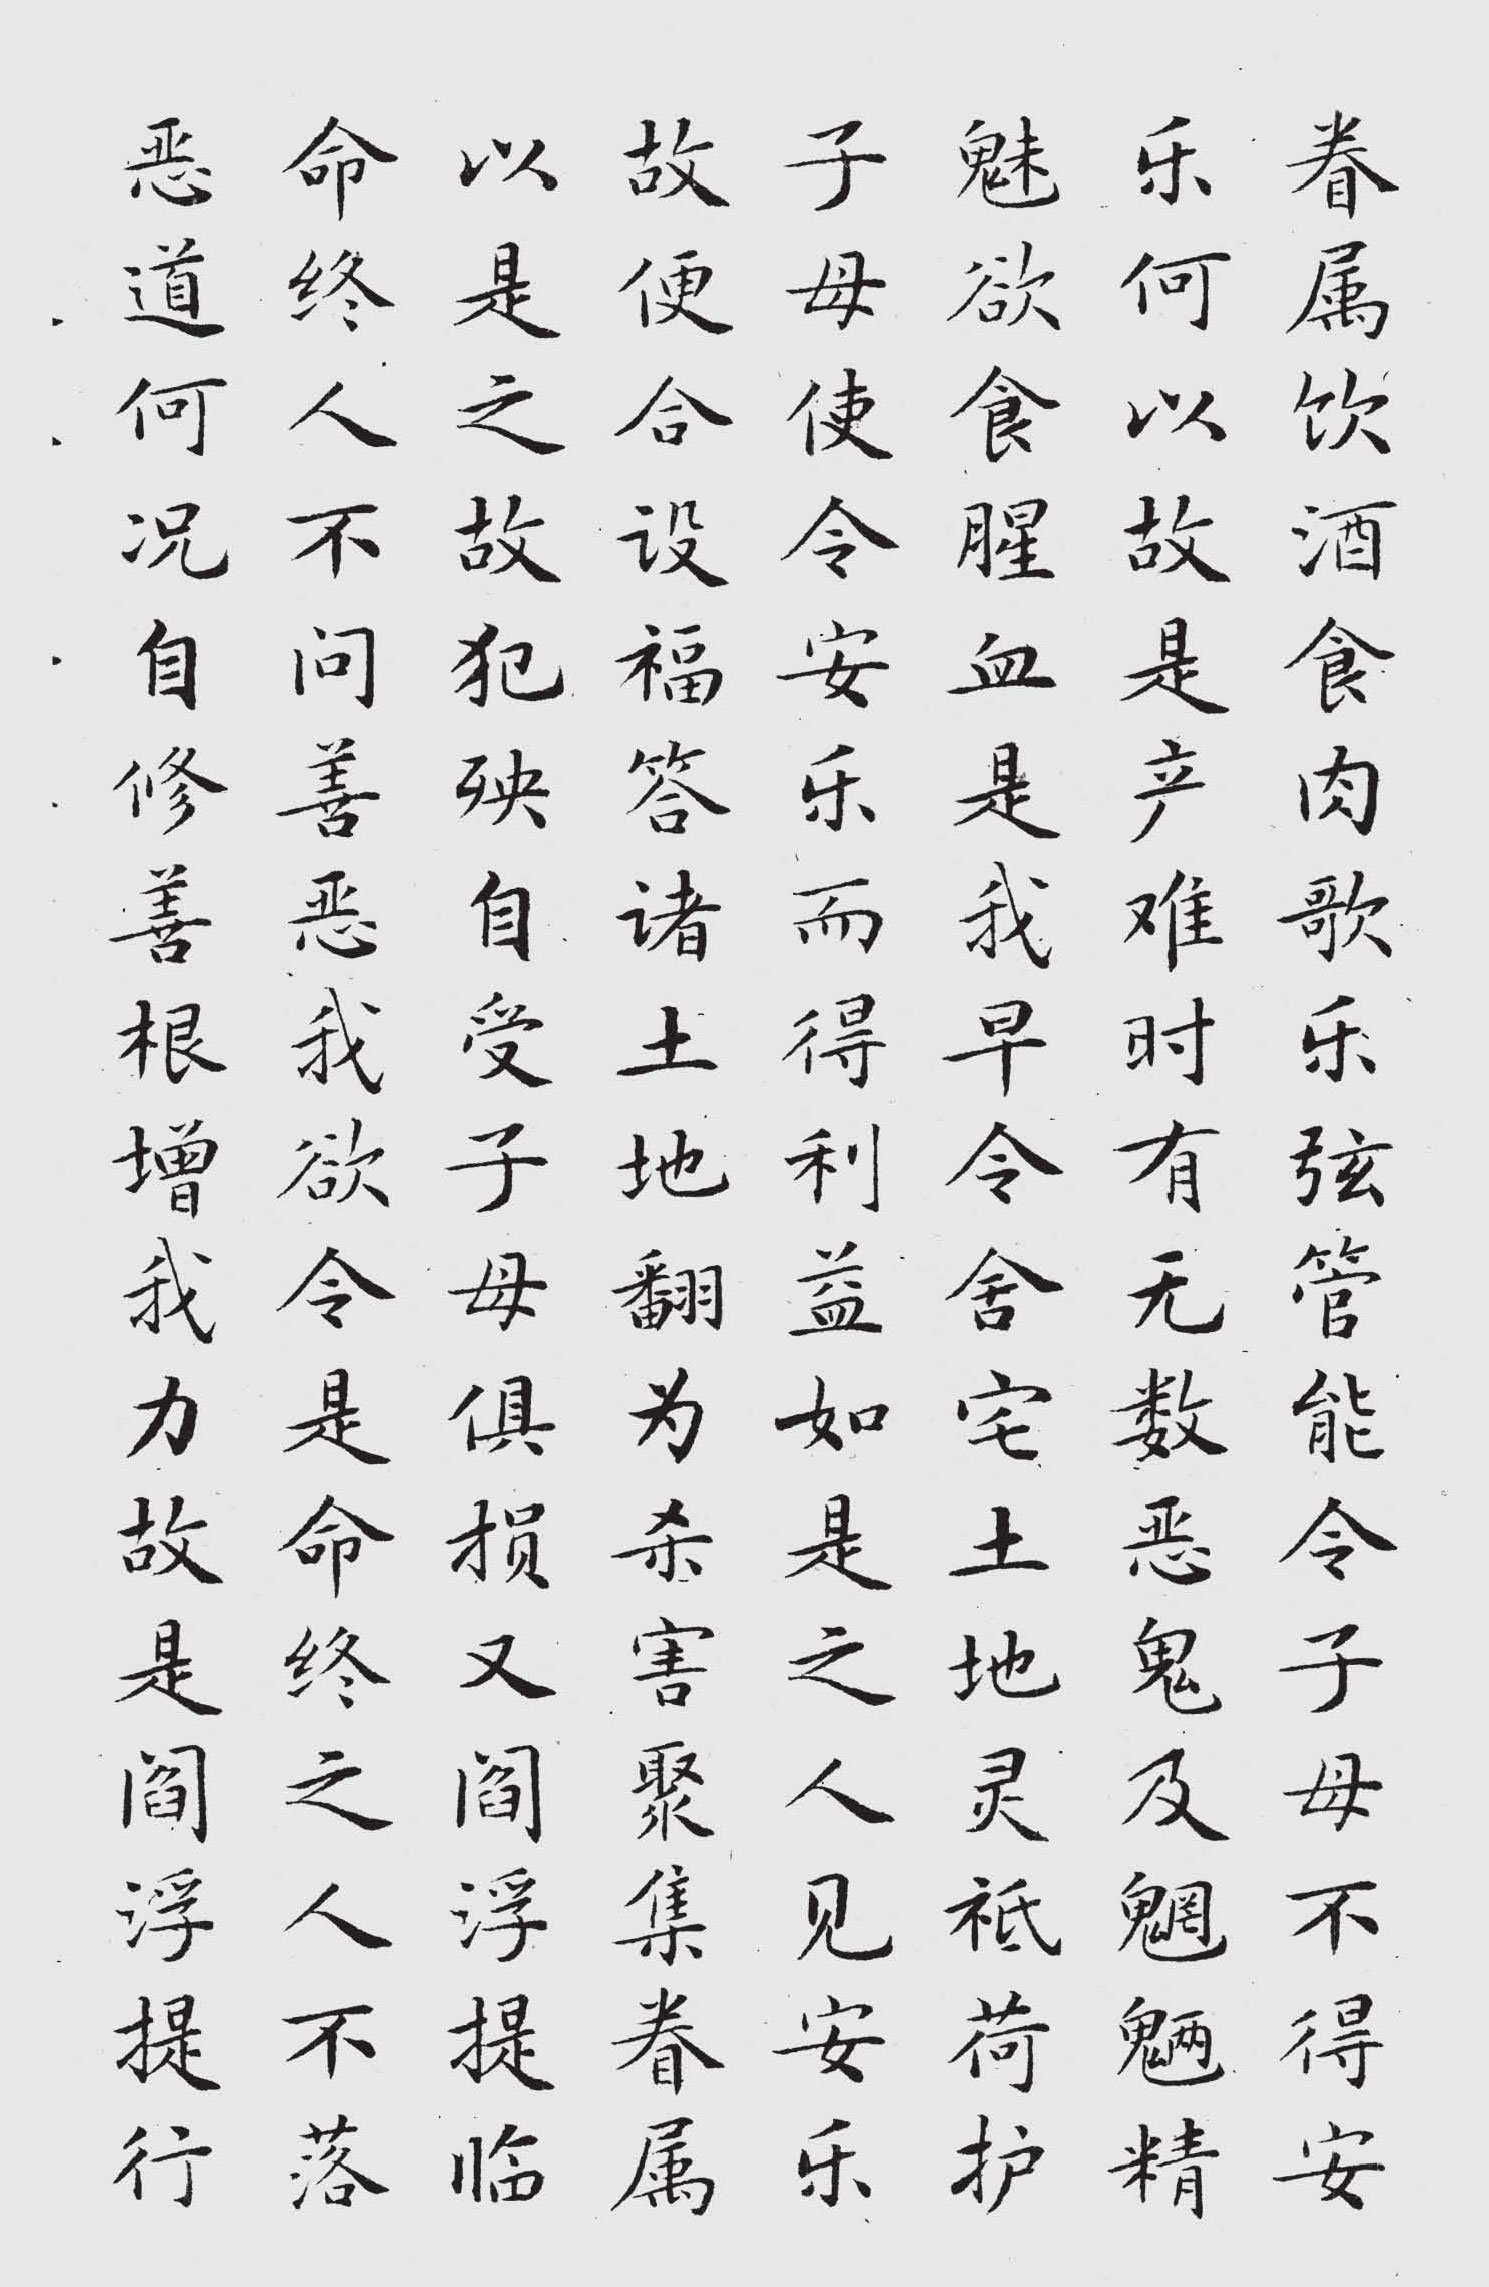 眷属饮酒食肉歌乐弦管能令子母不得安
乐何以故是产难时有无数恶鬼及魍魉精
魅欲食腥血是我早令舍宅土地灵祇荷护
子母使令安乐而得利益如是之人见安乐
故便合设福答诸土地翻为杀害聚集眷属
以是之故犯殃自受子母俱损又阎浮提临
命终人不问善恶我欲令是命终之人不落
恶道何况自修善根增我力故是阎浮提行